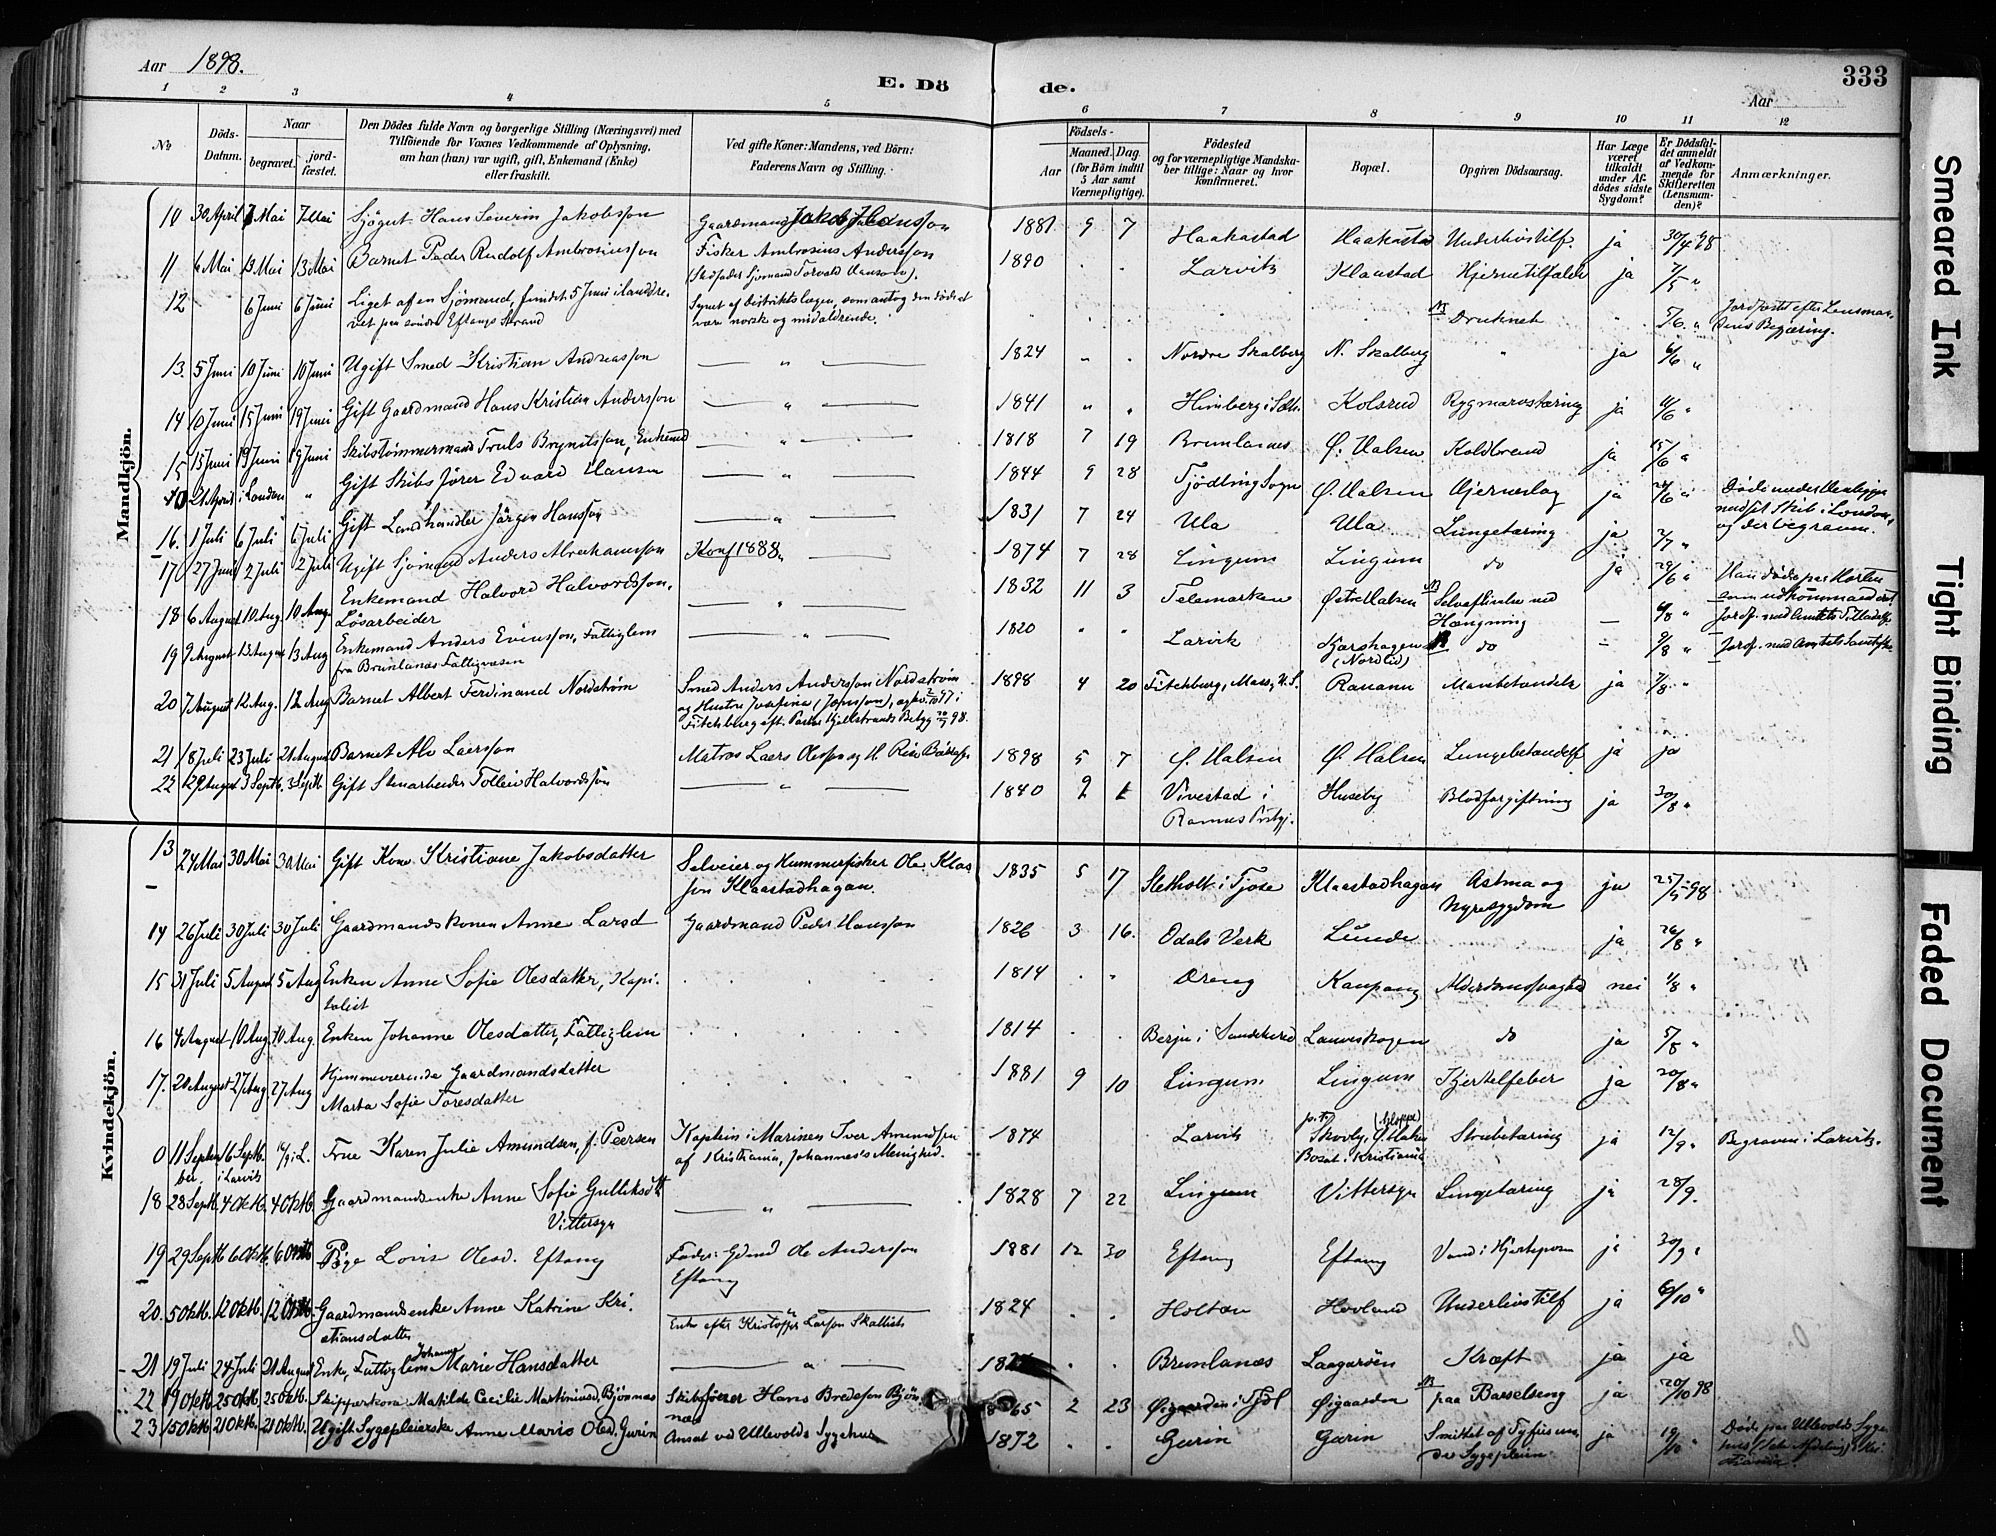 Aar 1898.
E. Döde.
Aar
333
1 2 3 4 5 6 7 8 9 10 11 12
№
Döds-Datum.
Naar
begravet.
jord-fæstet.
Den Dödes fulde Navn og borgerlige Stilling (Næringsvei) med
Tilföiende for Voxnes Vedkommende af Oplysning,
om han (hun) var ugift, gift, Enkemand (Enke)
eller fraskilt.
Ved gifte Koner: Mandens, ved Börn:
Faderens Navn og Stilling.
Födsels-
Aar
Maaned. Dag.
(for Börn indtil
5 Aar samt
Værnepligtige).
Födested
og for værnepligtige Mandska-
ber tillige: Naar og hvor
konfirmeret.
Bopæl.
Opgiven Dödsaarsag.
Har Læge
været
tilkaldt
under Af-
dödes sidste
Sygdom?
Er Dödsfal-
det anmeldt
af Vedkom-
mende for
Skifteretten
(Lensman-
den)?
Anmærkninger.
Mandkjön.
10 30 April 7 Mai 7 Mai Sjögut Hans Severin Jakobssøn Gaardmand Jakob Hanssøn 1881 9 7 Haakastad Haakastad Underlivstilf. ja 30/4 98
11 6 Mai 13 Mai 13 Mai Barnet Peder Rudolf Ambrosiussøn Fisker Ambrosius Anderssøn 1890 Larvik Klaastad Hjernetilfælde ja 7/5 "
12 6 Juni 6 Juni Liget af en Sjömand, fundet 5 Juni ilanddre-
vet paa søndre Eftangs Strand
Synet af Distriktslægen, som antog den döde at
være norsk og midaldrende.
Druknet 5/6 "
Jordfæstet efter Lensman-
dens Begjæring.
13. 5 Juni 10 Juni 10 Juni Ugift Smed Kristian Andreassøn 1824 Nordre Skalberg N. Skalberg " ja 6/6 "
14 10 Juni 15 Juni 19 Juni Gift Gaardmand Hans Kristian Anderssøn 1841 Himberg i Kolsrud Rygmarvstæring ja 11/6 "
15 15 Juni 19 Juni 19 Juni Skibstømmermand Truls Bryniltssøn, Enkemd 1818 7 19 Brunlanes Ø. Halsen Koldbrand ja 15/6 "
0 21 April i London " Gift Skibsfører Edvard Hansen 1844 9 28 Tjödling Sogn Ø. Halsen Hjerneslag ja
nedst Skib i London,
og der begraven.
16. 1 Juli 6 Juli 6 Juli Gift Landhandler Jörgen Hanssøn 1831 7 24 Ula Ula Lungetæring ja 2/7 "
17 27 Juni 2 Juli 2 Juli Ugift Sjömand Anders Abrahamssøn Konf 1888. 1874 7 28 Lingum Lingum do ja 29/6 "
18 6 August 10 Aug 10. Aug. Enkemand Halvord Halvordssøn.
Løsarbeider
1832 11 3 Telemarken Østre Halsen Selvaflivelse ved
Hængning — 6/8 "
19 9 August 13 August 13 Aug Enkemand Anders Evenssøn, Fattiglem
fra Brunlanes Fattigvæsen
1820 Larvik
(Nordlid)
do 9/8 "
20 7 August 12 Aug. 12 Aug Barnet Albert Ferdinand Nordstrøm Smed Anders Anderssøn Nordstrøm
og Hustru Josefina (Jonsson),
1898 4 20 Fitchburg, Mass, U.S. Ravann ja 7/8 "
21 18 Juli 23 Juli 21 August Barnet Alv Laerssøn Matros Laers 1898 5 7 Ø. Halsen Ø. Halsen Lungebetændelse ja ja
22 29 August 3 Septb. 3 Septb. Gift Stenarbeider Tollev Halvordssøn 1840 9 1 Vivestad i
Ramnes Prstgj. Huseby Blodforgiftning ja 30/8 "
Kvindekjön.
13 24 Mai 30 Mai 30 Mai Gift Kone Kristiane Jakobsdatter Selveier og Hummerfisker Ole Klas-
søn Klaastadhagan.
1835 5 17 Sletholt i Tjose Klaastadhagan Astma og
Nyresygdom ja 25/5 98
14 26 Juli 30 Juli 30 Juli Gaardmandskonen Anne Larsd Gaardmand Peder Hanssøn 1826 3 16. Odals Verk Lunde ja 26/8 "
15 31 Juli 5 August 5 Aug Enken Anne Sofie Olesdatter, Kapi-
talist
1814 Øreng Kaupang Alderdomssvaghed nei 1/8 "
16 4 August 10 Aug. 10 Aug. Enken Johanne Olesdatter, Fattiglem 1814 Berju i Sandeherred Lauveskogen do ja 5/8 "
17. 20 August 27 Aug 27 Aug Hjemmeværende Gaardmandsdatter
Marta Sofie Toresdatter
1881 9 10 Lingum Lingum Kjertelfeber ja 20/8 "
0 11 Septem
ber. 16 Septb.
i Larvik Frue Karen Julie Amundsen, f. Peersen Kaptein i Marinen Iver Amundsen
af Kristiania, Johannes's Menighed.
1874 Larvik Skovly, Ø. Halsen
Bosat i Kristiania Strubetæring ja 12/9 " Begraven i Larvik.
18 28 Septb. 4 Oktb. 4 Oktb. Gaardmandsenke Anne Sofie Gulliksdtr
Vittersyn
1828 7 22 Lingum Vittersyn Lungetæring ja 28/9.
19 29 Septb 6 Oktb. 6 Oktb Pige Lovis Olesd. Eftang Fader: Gdmd Ole Anderssøn
Eftang
1881 12 30 Eftang Eftang Vand i Hjerteposen ja 30/9 "
20. 5 Oktb. 12 Oktb. 12 Oktb. Gaardmandsenke Anne Katrine Kri-
stiansdatter
Enke efter Kristoffer Larsøn Skallist
1824 Holtan Hovland Underlivstilf ja 6/10 "
21 19 Juli 24 Juli 21 August Enke, Fattiglem Johanne Marie Hansdatter Brunlanæs Laagarøen Kræft ja ja
22 19 Oktb. 25 Oktb. 25 Oktb. Skipperkone Matilde Cecilie Martiniusd. Bjønnes Skibsfører Hans Bredessøn Bjøn-
næs
1865 2 23 Øigaarden i Tjöl Øigaarden paa Barselseng ja 20/10 98
23 15 Oktb. 21 Oktb. 21 Oktb. Ugift Sygepleierske Anne Marie Olsd. Gurin Ansat ved Ullevolds Sygehus 1872 Gurin Gurin Smittet af Tyfus un-
der Sygepleien ja 19/10 " Døde paa Ullevolds Syge-
Smeared Ink
Tight Binding
Faded Document